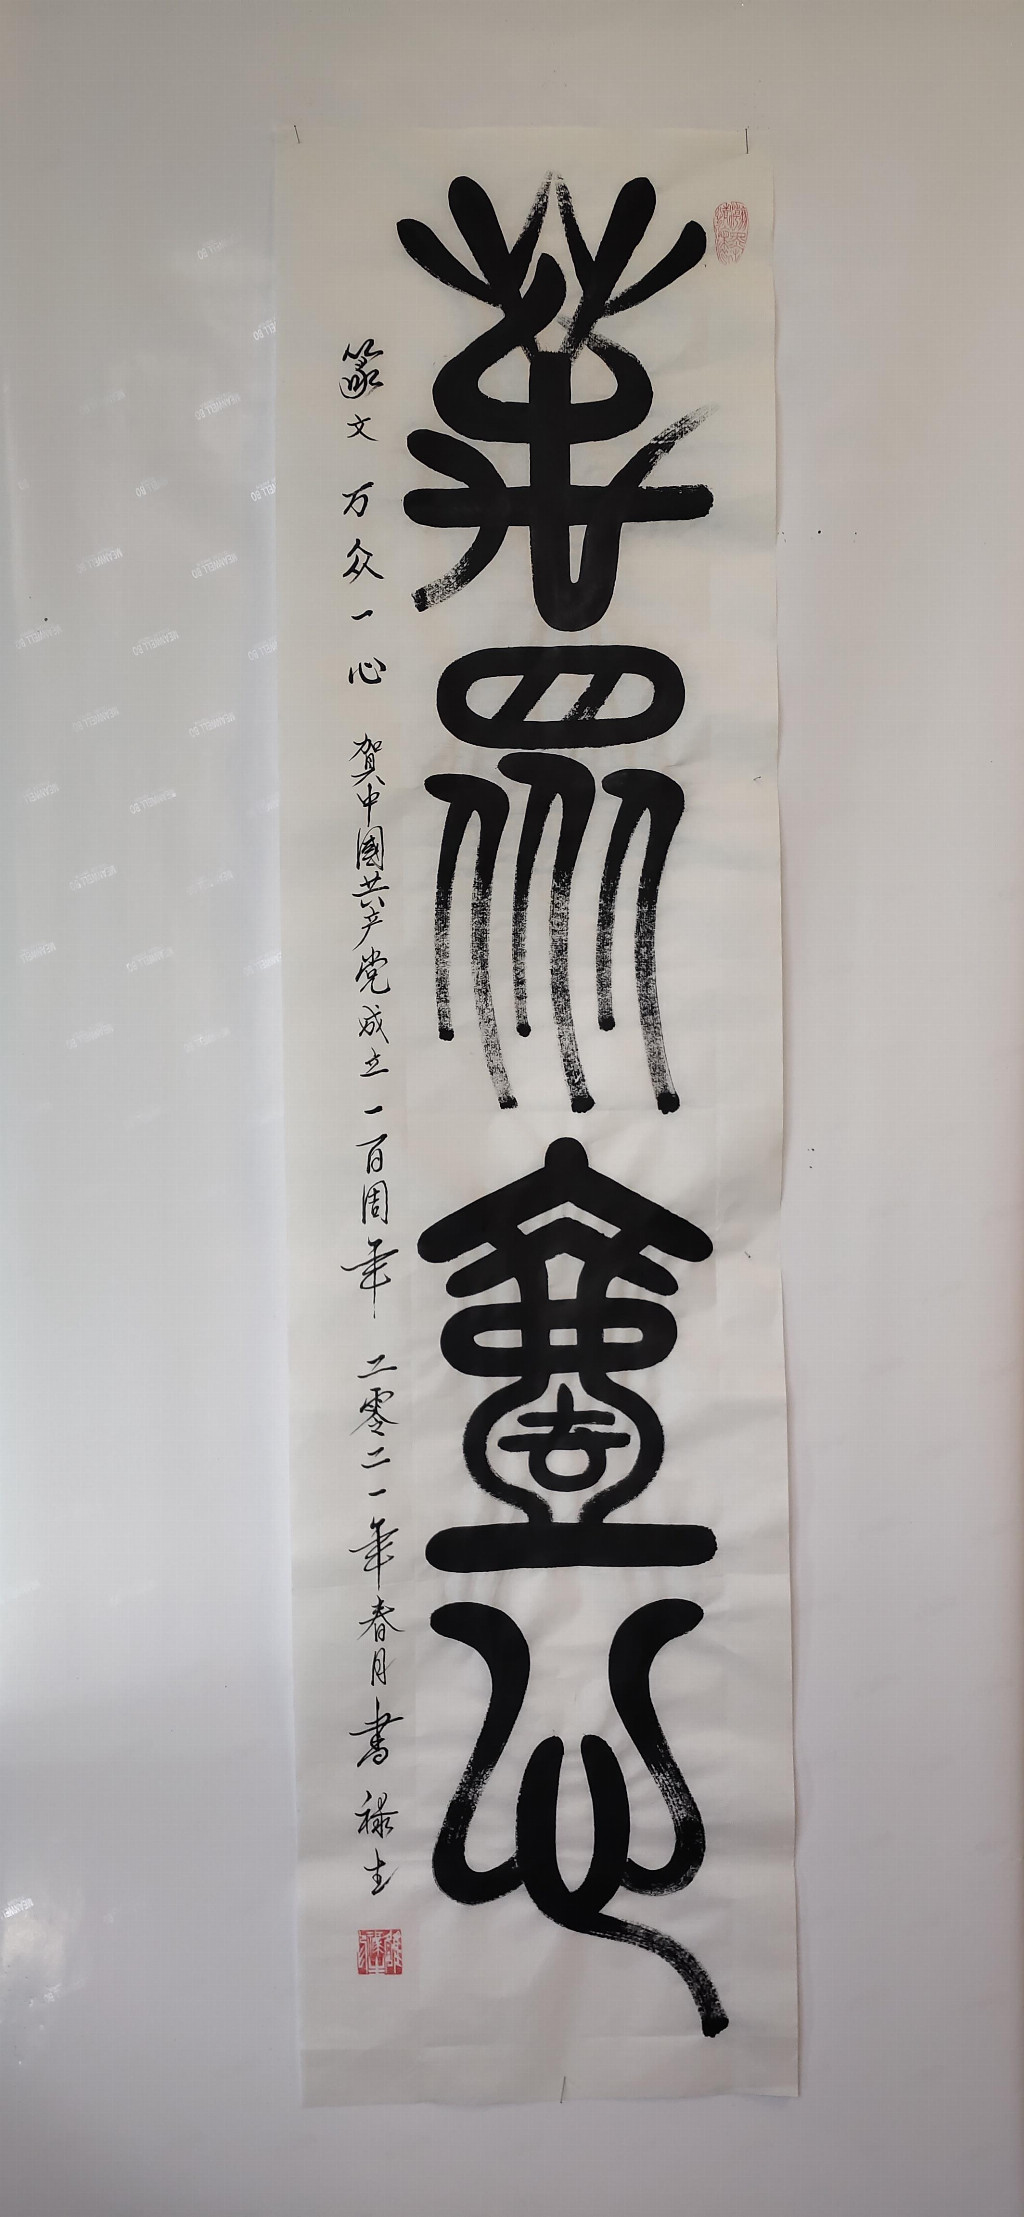 萬眾壹心
篆文 万众一心 贺中國共产党成立一百周年 二零二一年春月書 禄生